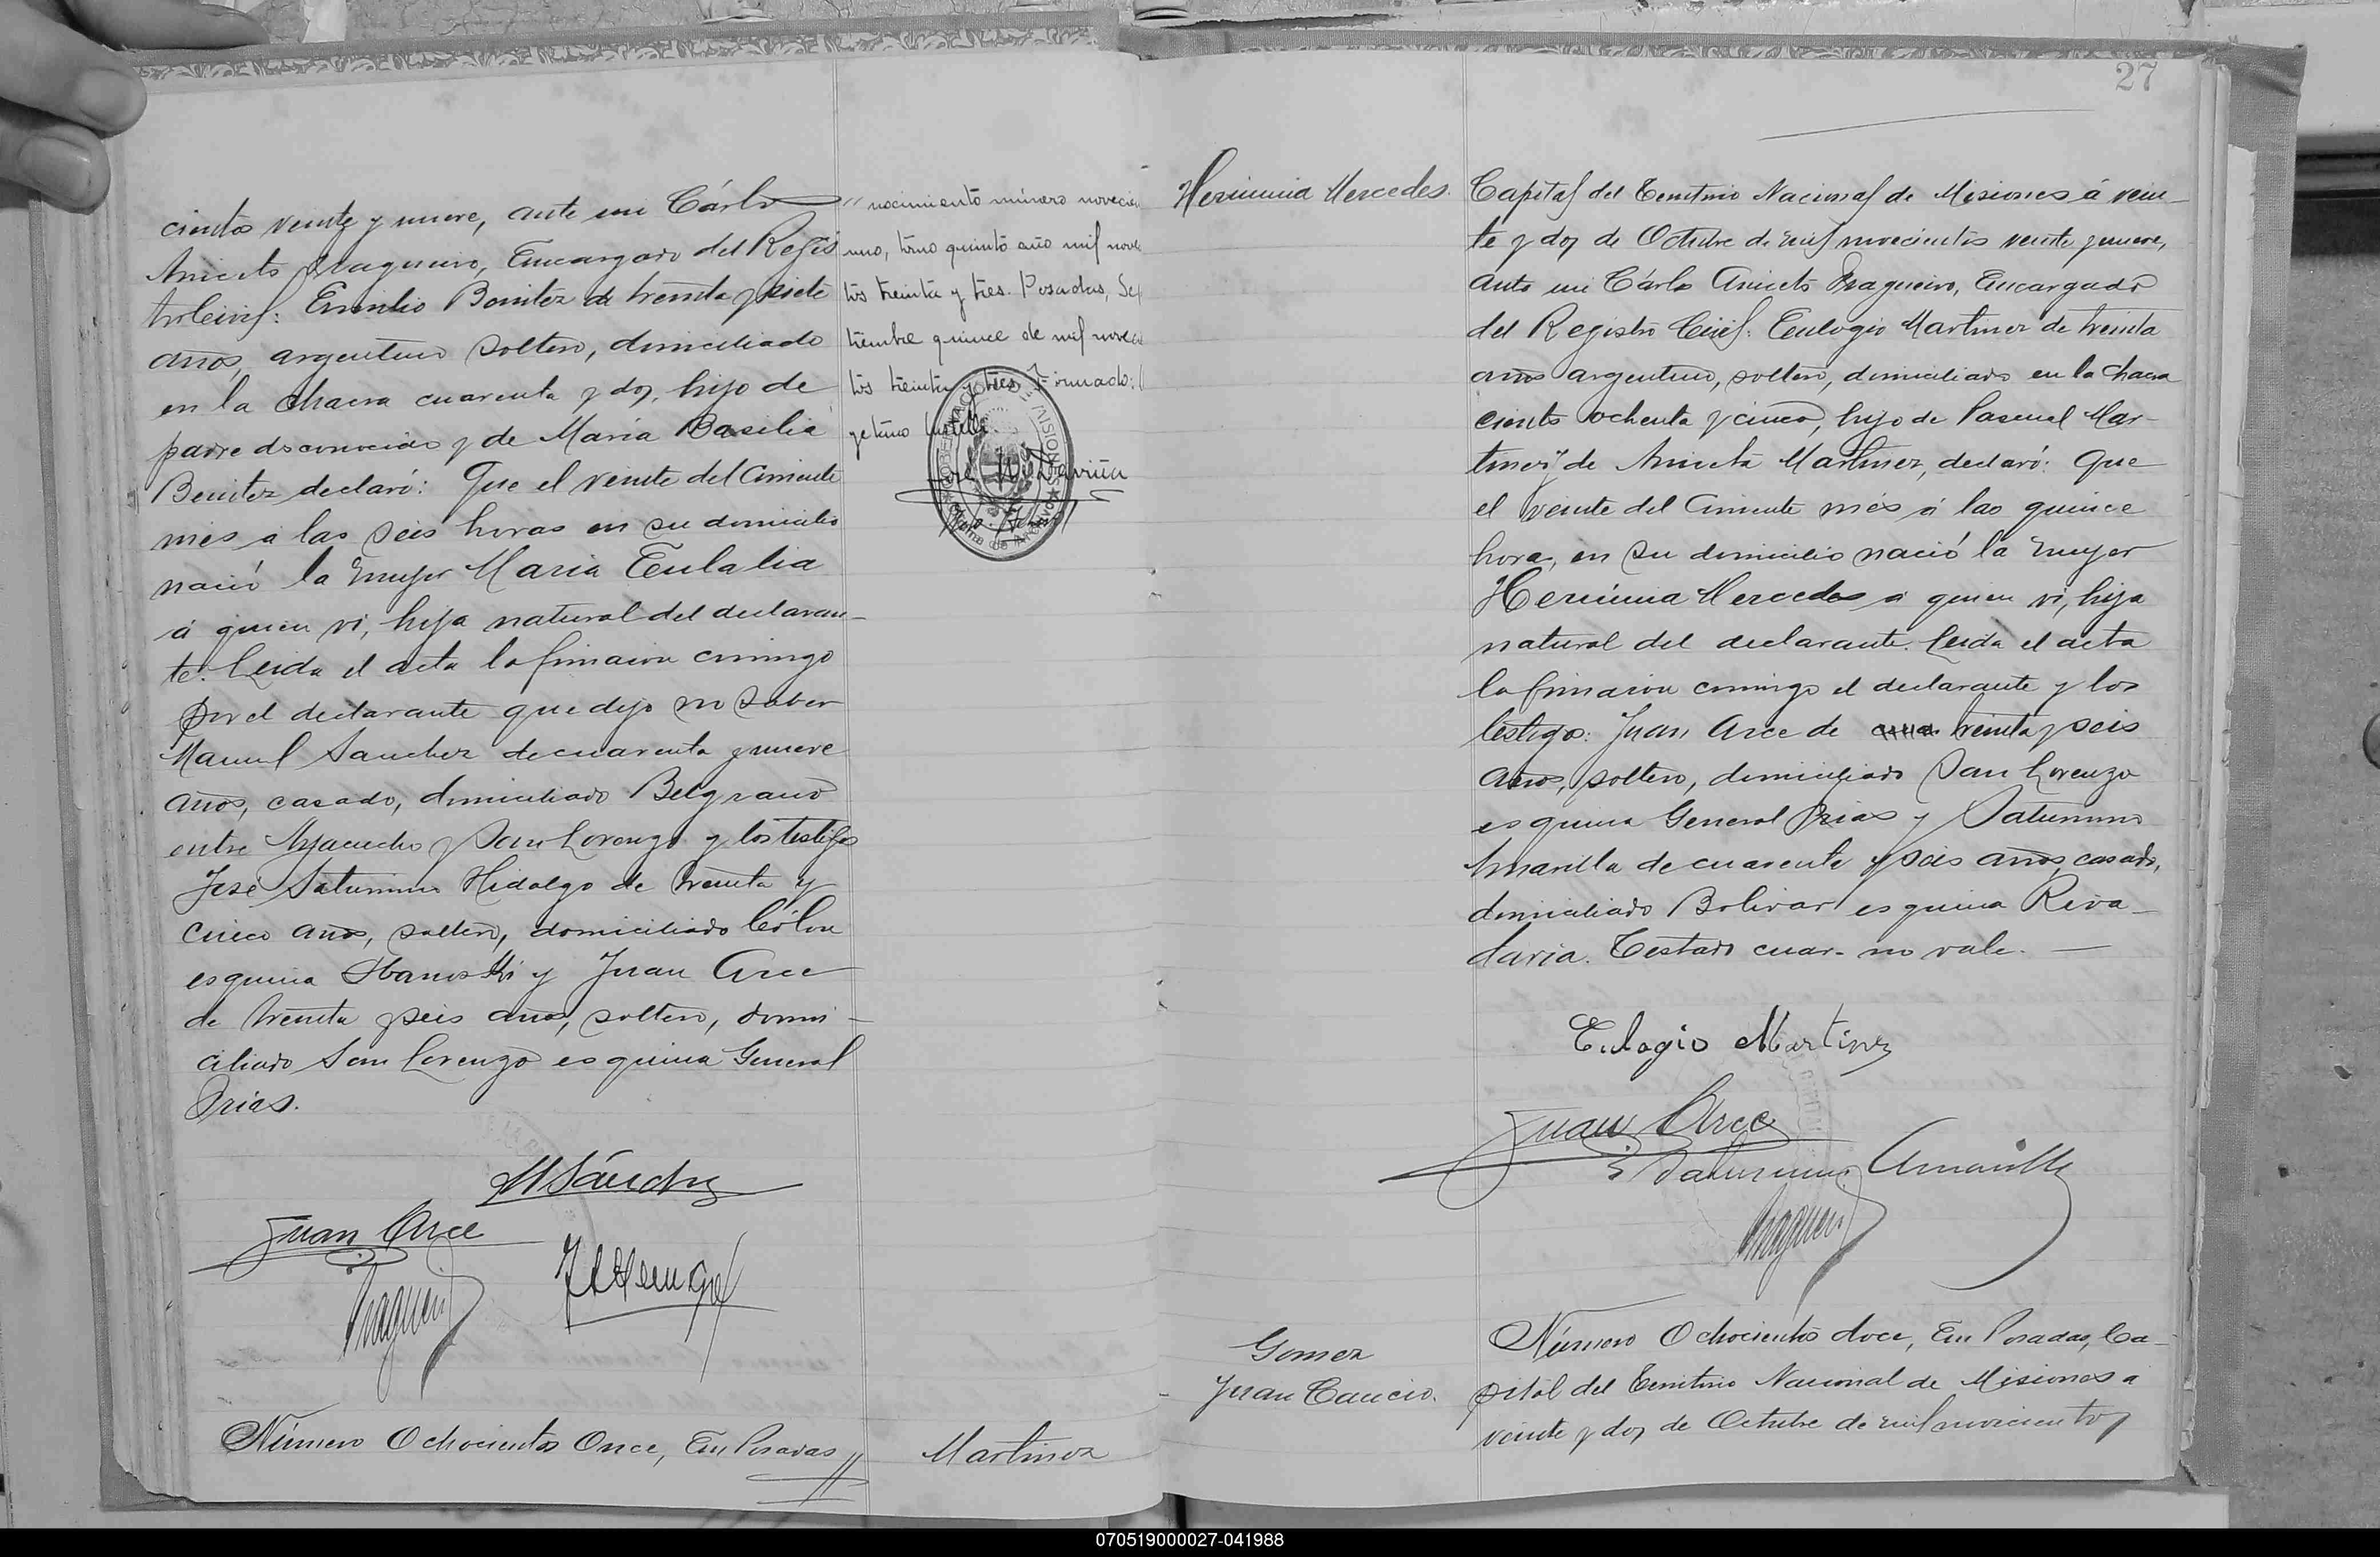 cientos veinte y nueve, ante mi Cárlos
Aniceto Fragueiro, Encargado del Regis
tro Civil: Emilio Benitez de treinta y siete
años, argentino soltero, domiciliado
en la chacra cuarenta y dos, hijo de
padre desconocido y de Maria Basilia
Benitez declaró: Que el veinte del corriente
mes á las seis horas en su domicilio
nació la mujer Maria Eulalia
á quien vi, hija natural del declaran-
te. Leida el acta la firmaron conmigo
por el declarante que dijo no saber
Manuel Sanchez de cuarenta y nueve
años, casado, domiciliado Belgrano
entre Ayacucho y San Lorenzo y los testigos
José Saturnino Hidalgo de treinta y
cinco años, soltero, domiciliado Cólon
esquina y Juan Arce
de treinta y seis años, soltero, domi-
ciliado San Lorenzo esquina General
Frias.
MSánchez
Juan Arce
Número Ochocientos Once, En Posadas
" nacimiento número novecien
uno, tomo quinto año mil nove
tos treinta y tres. Posadas, Se
tiembre quince de mil novecie
tos treinta y tres. Firmado:
Martinez
27
Herminia Mercedes.
Capital del Territorio Nacional de Misiones á vein-
te y dos de Octubre de mil novecientos veinte y nueve,
ante mi Cárlos Aniceto Fragueiro, Encargado
del Registro Civil: Eulogio Martinez de treinta
años argentino, soltero, domiciliado en la chacra
ciento ochenta y cinco, hijo de Pascual Mar-
tinez y de Aniceta Martinez, declaró: Que
el veinte del corriente més á las quince
horas, en su domicilio nació la mujer
Herminia Mercedes á quien vi, hija
natural del declarante. Leida el acta
la firmaron conmigo el declarante y los
testigos: Juan Arce de cuar treinta y seis
años, soltero, domiciliado San Lorenzo
esquina General Frias y Saturnino
Amarilla de cuarenta y seis años, casado,
domiciliado Bolivar esquina Riva-
davia. Testado cuar- no vale. —
Eulogio Martinez
Juan Arce
Saturnino Amarilla
Gomez
Juan Cancio.
Número Ochocientos doce, En Posadas, Ca-
pital del Territorio Nacional de Misiones á
veinte y dos de Octubre de mil novecientos
070519000027-041988